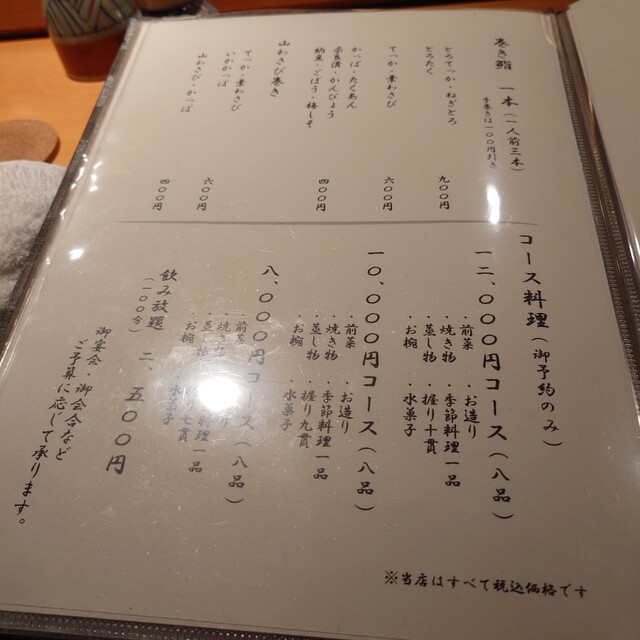 巻き鮨 一本(一人前三本)
手巻きは一〇〇円引き
とろてっか・ねぎとろ
とろたく 九〇〇円
てっか・葉わさび 六〇〇円
かっぱ・たくあん
奈良漬・かんぴょう
納豆・ごぼう・梅しそ 四〇〇円
山わさび巻き
てっか・葉わさび
いかかっぱ 六〇〇円
山わさび・かっぱ 四〇〇円
コース料理(御予約のみ)
一二、〇〇〇円コース(八品)
・前菜 ・お造り
・焼き物 ・季節料理一品
・蒸し物 ・握り十貫
・お椀 ・水菓子
一〇、〇〇〇円コース(八品)
・前菜 ・お造り
・焼き物 ・季節料理一品
・蒸し物 ・握り九貫
・お椀 ・水菓子
八、〇〇〇円コース(八品)
・前菜 ・お造り
・焼き物 料理一品
・蒸し物 七貫
・お椀 ・水菓子
飲み放題 二、五〇〇円
(一〇〇分)
御宴会・御会合など
ご予算に応じて承ります。
※当店はすべて税込価格です